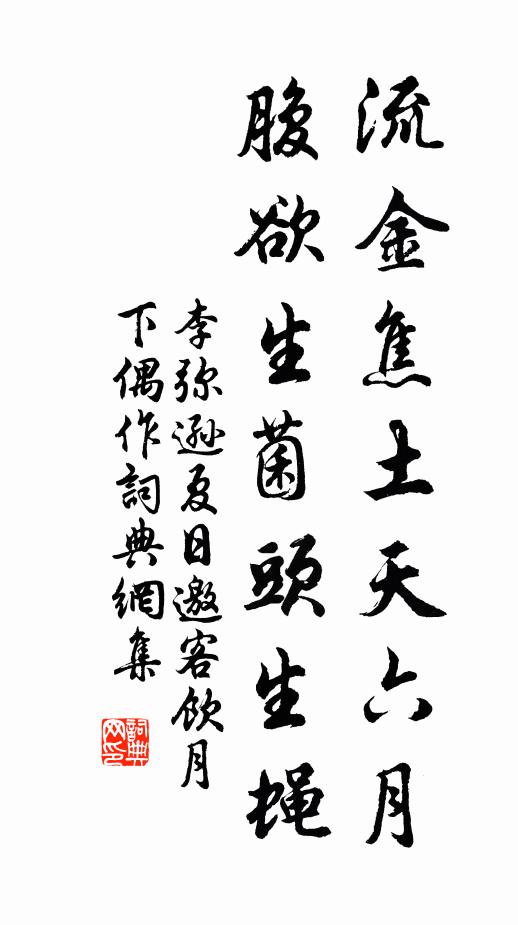 流金焦土天六月
腹欲生菌頭生蝇
李弥遜夏日邀客飲月
下偶作詞典網集
詞典
网印